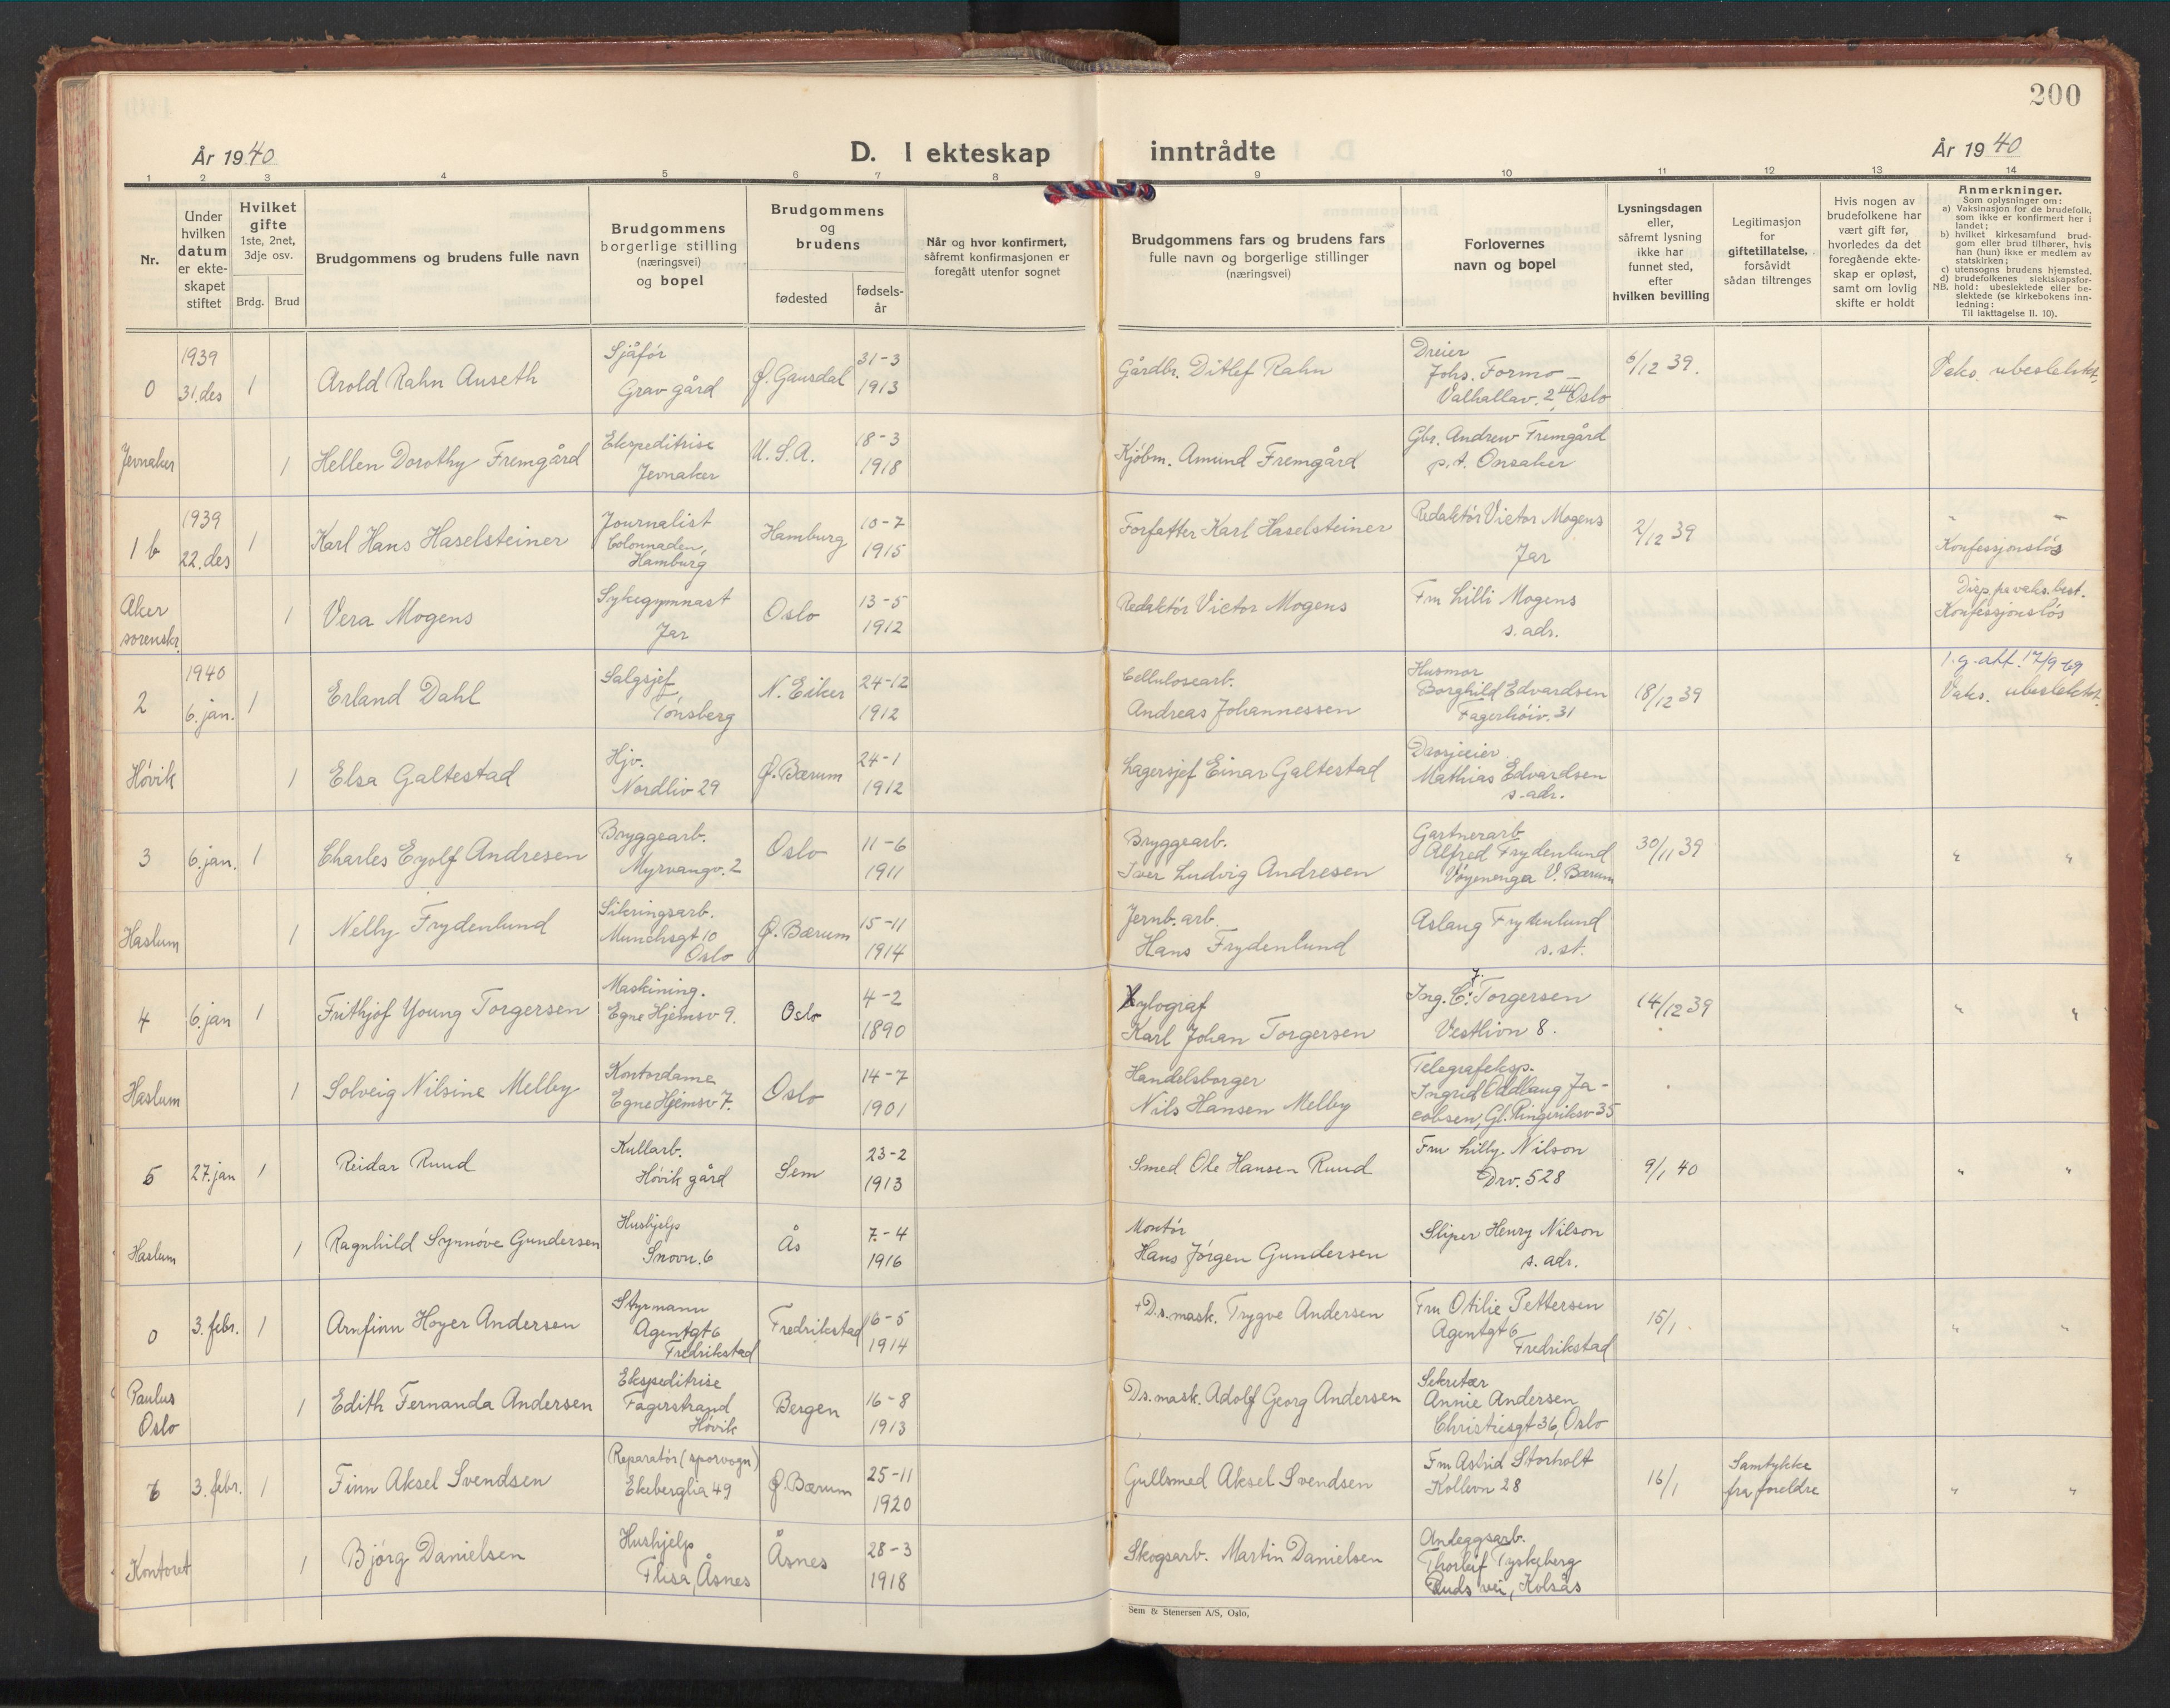 200
År 1940
D. I ekteskap inntrådte
År 1940
1 2 3 4 5 6 7 8 9 10 11 12 13 14
Nr.
Under hvilken datum er ekte-skapet stiftet
Hvilket gifte 1ste, 2net, 3dje osv.
Brdg. Brud
Brudgommens og brudens fulle navn
Brudgommens borgerlige stilling (næringsvei) og bopel
Brudgommens og brudens
fødested
fødsels-år
Når og hvor konfirmert, såfremt konfirmasjonen er foregått utenfor sognet
Brudgommens fars og brudens fars fulle navn og borgerlige stillinger (næringsvei)
Forlovernes navn og bopel
Lysningsdagen eller, såfremt lysning ikke har funnet sted, efter hvilken bevilling
Legitimasjon for giftetillatelse, forsåvidt sådan tiltrenges
Hvis nogen av brudefolkene har vært gift før, hvorledes da det foregående ekte-skap er opløst, samt om lovlig skifte er holdt
Anmerkninger.
Som oplysninger om:
a) Vaksinasjon for de brudefolk, som ikke er konfirmert her i landet;
b) hvilket kirkesamfund brud-gom eller brud tilhører, hvis han (hun) ikke er medlem av statskirken;
c) utensogns brudens hjemsted.
d) brudefolkenes slektskapsfor-hold: ubeslektede eller be-slektede (se kirkebokens inn-ledning:
NB.
Til iakttagelse II. 10).
0 1939 31. des 1 Arold Rahn Auseth Sjåfør Grav gård Ø. Gausdal 31-3 1913 Gårdbr. Ditlef Rahn Dreier Johs. Formo Valhallav. 2 III Oslo 6/12 39. Vaks. ubeslektet.
Jevnaker 1 Hellen Dorothy Fremgård Ekspeditrise Jevnaker U.S.A. 18-3 1918 Kjøbm. Amund Fremgård Gbr. Andrew Fremgård p.t. Onsaker
1 b 1939 22. des 1 Karl Hans Haselsteiner Journalist Colonnaden, Hamburg Hamburg 10-7 1915 Forfatter Karl Haselsteiner Redaktør Victor Mogens Jar 2/12 39 " " Konfessjonsløs
Aker sorenskr. 1 Vera Mogens Sykegymnast Jar Oslo 13-5 1912 Redaktør Victor Mogens Fru Lilli Mogens s. adr. Disp. fra vaks. best. Konfessjonsløs
2 1940 6. jan. 1 Erland Dahl Salgsjef Tønsberg N. Eiker 24-12 1912 Cellulosearb. Andreas Johannessen Husmor Borghild Edvardsen Fagerhøiv. 31 18/12 39 1. g. att. 17/9-69 Vaks. ubeslektet.
Høvik 1 Elsa Galtestad Hjv. Nordliv 29 Ø. Bærum 24-1 1912 Lagersjef Einar Galtestad Drosjeeier Mathias Edvardsen s. adr.
3 6. jan. 1 Charles Eyolf Andresen Bryggearb. Myrvangv. 2 Oslo 11-6 1911 Bryggearb. Iver Ludvig Andresen Gartnerarb. Alfred Frydenlund Vøyenenga V. Bærum 30/11 39 " "
Haslum 1 Nelly Frydenlund Sikringsarb. Munchsgt 10 Oslo Ø. Bærum 15-11 1914 Jernb. arb. Hans Frydenlund Aslaug Frydenlund s. st.
4 6. jan 1 Frithjof Young Torgersen Maskining. Egne Hjemsv 9. Oslo 4-2 1890 Xylograf Karl Johan Torgersen Ing. C. J. Torgersen Vestlivn 8. 14/12 39 " "
Haslum 1 Solveig Nilsine Melby Kontordame Egne Hjemsv 7. Oslo 14-7 1901 Handelsborger Nils Hansen Melby Telegrafeksp. Ingrid Oddlaug Ja-cobsen, Gl. Ringeriksv 35
5 27. jan 1 Reidar Ruud Kullarb. Høvik gård Sem 23-2 1913 Smed Ole Hansen Ruud Fru Lilly Nilson Drv. 528 9/1 40 " "
Haslum 1 Ragnhild Synnøve Gundersen Hushjelp Snovn. 6 Ås 7-4 1916 Montør Hans Jørgen Gundersen Sliper Henry Nilson s. adr.
0 3. febr. 1 Arnfinn Høyer Andersen Styrmann Agentgt 6 Fredrikstad Fredrikstad 16-5 1914 + D.s. mask. Trygve Andersen Fru Otilie Pettersen Agentgt 6 Fredrikstad 15/1 " "
Paulus Oslo 1 Edith Fernanda Andersen Ekspeditrise Fagerstrand Høvik Bergen 16-8 1913 D.s. mask. Adolf Georg Andersen Sekretær Annie Andersen Christiesgt 36, Oslo
6 3. febr. 1 Finn Aksel Svendsen Reparatør (sporvogn) Ekeberglia 49 Ø. Bærum 25-11 1920 Gullsmed Aksel Svendsen Fru Astrid Storholt Kollevn 28 16/1 Samtykke fra foreldre " "
Kontoret 1 Bjørg Danielsen Hushjelp Flisa, Åsnes Åsnes 28-3 1918 Skogsarb. Martin Danielsen Anleggsarb. Thorleif Tyskeberg Ruds vei, Kolsås
Sem & Stenersen A/S, Oslo.